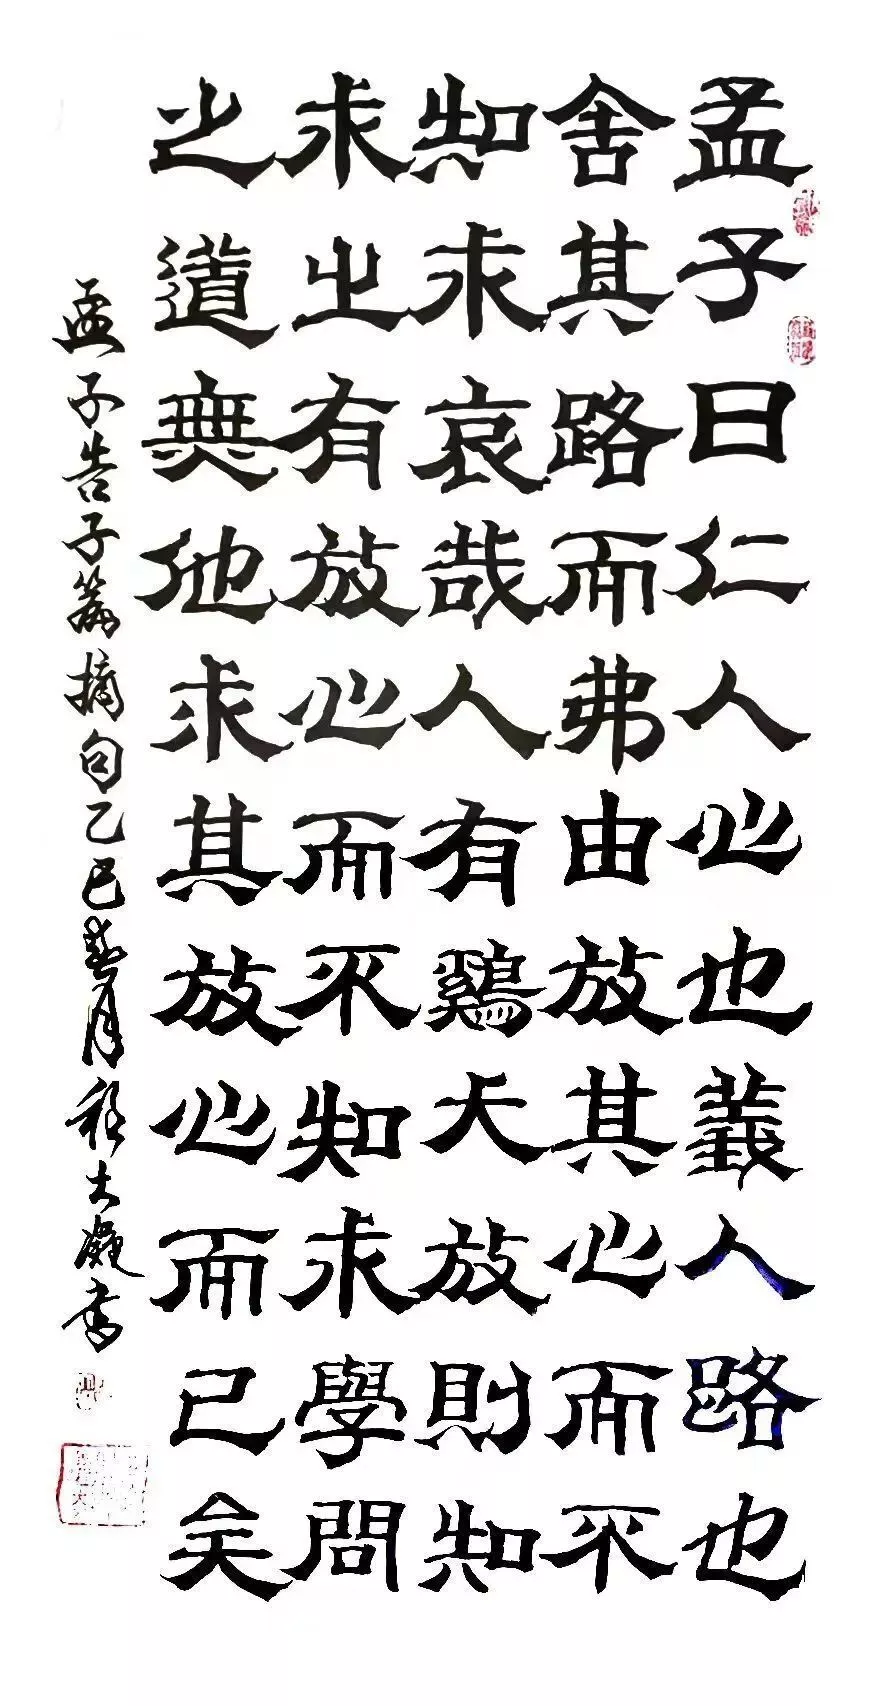 孟子曰仁人心也義人路也
舍其路而弗由放其心而不
知求哀哉人有鷄犬放則知
求之有放心而不知求學問
之道無他求其放心而已矣
孟子告子篇摘句乙巳春月程大凝書